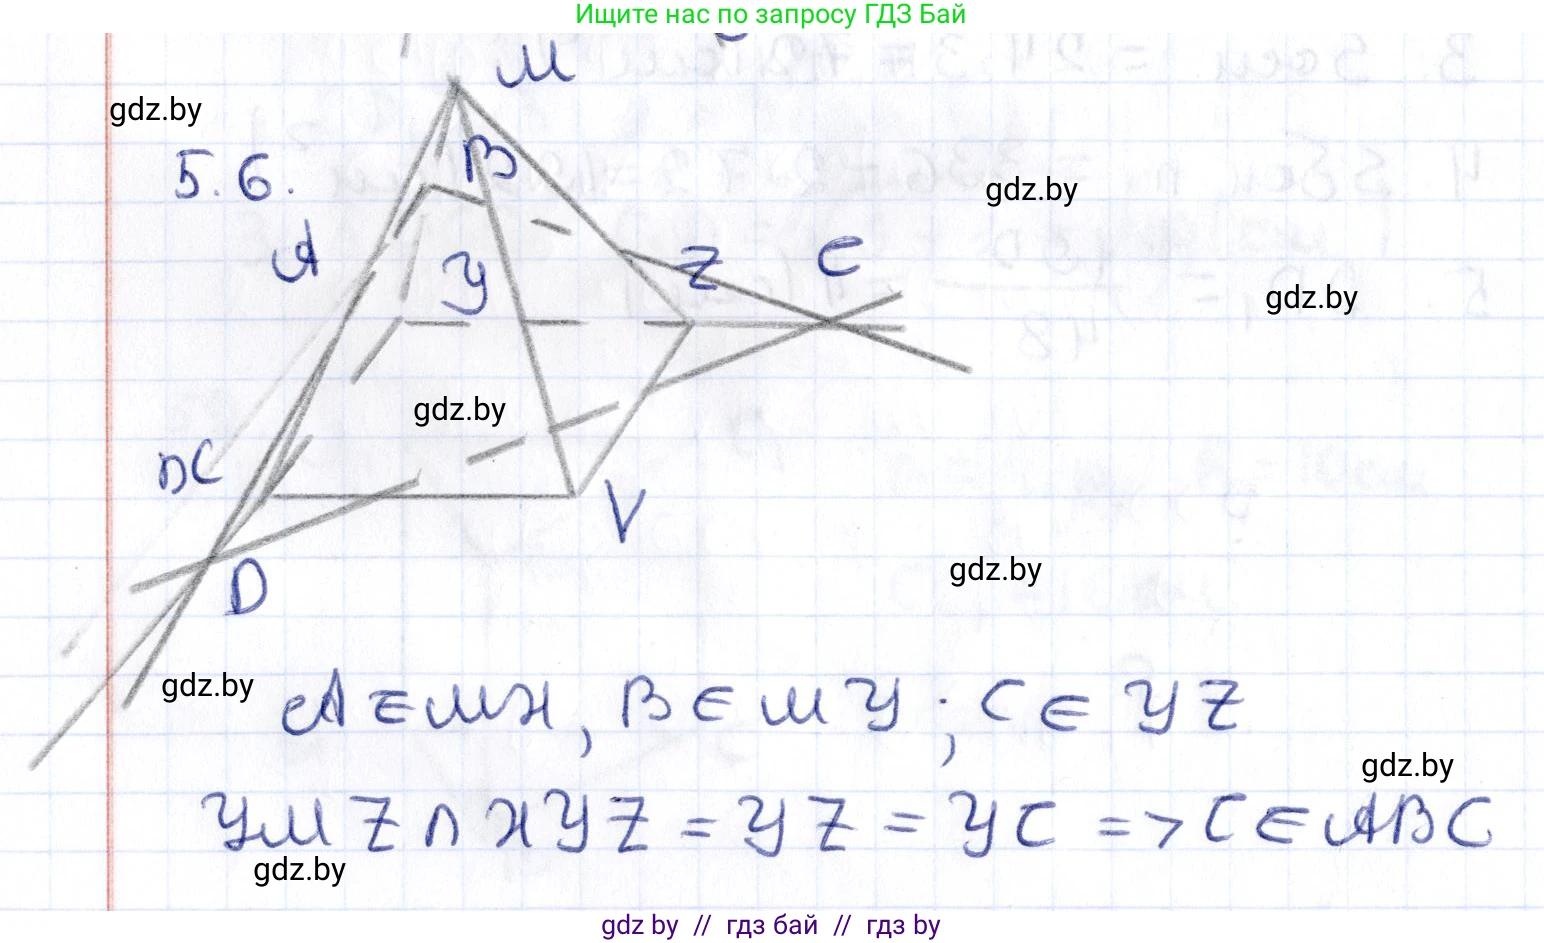 Ищите нас по запросу ГДЗ Бай
M
gdz.by
B
5.6.
gdz.by
A
Y
Z
C
gdz.by
gdz.by
X
V
gdz.by
D
gdz.by
A ∈ MX, B ∈ MY; C ∈ YZ
gdz.by
YMZ ∩ XYZ = YZ = YC => C ∈ ABC
gdz.by
gdz by // гдз бай // гдз by